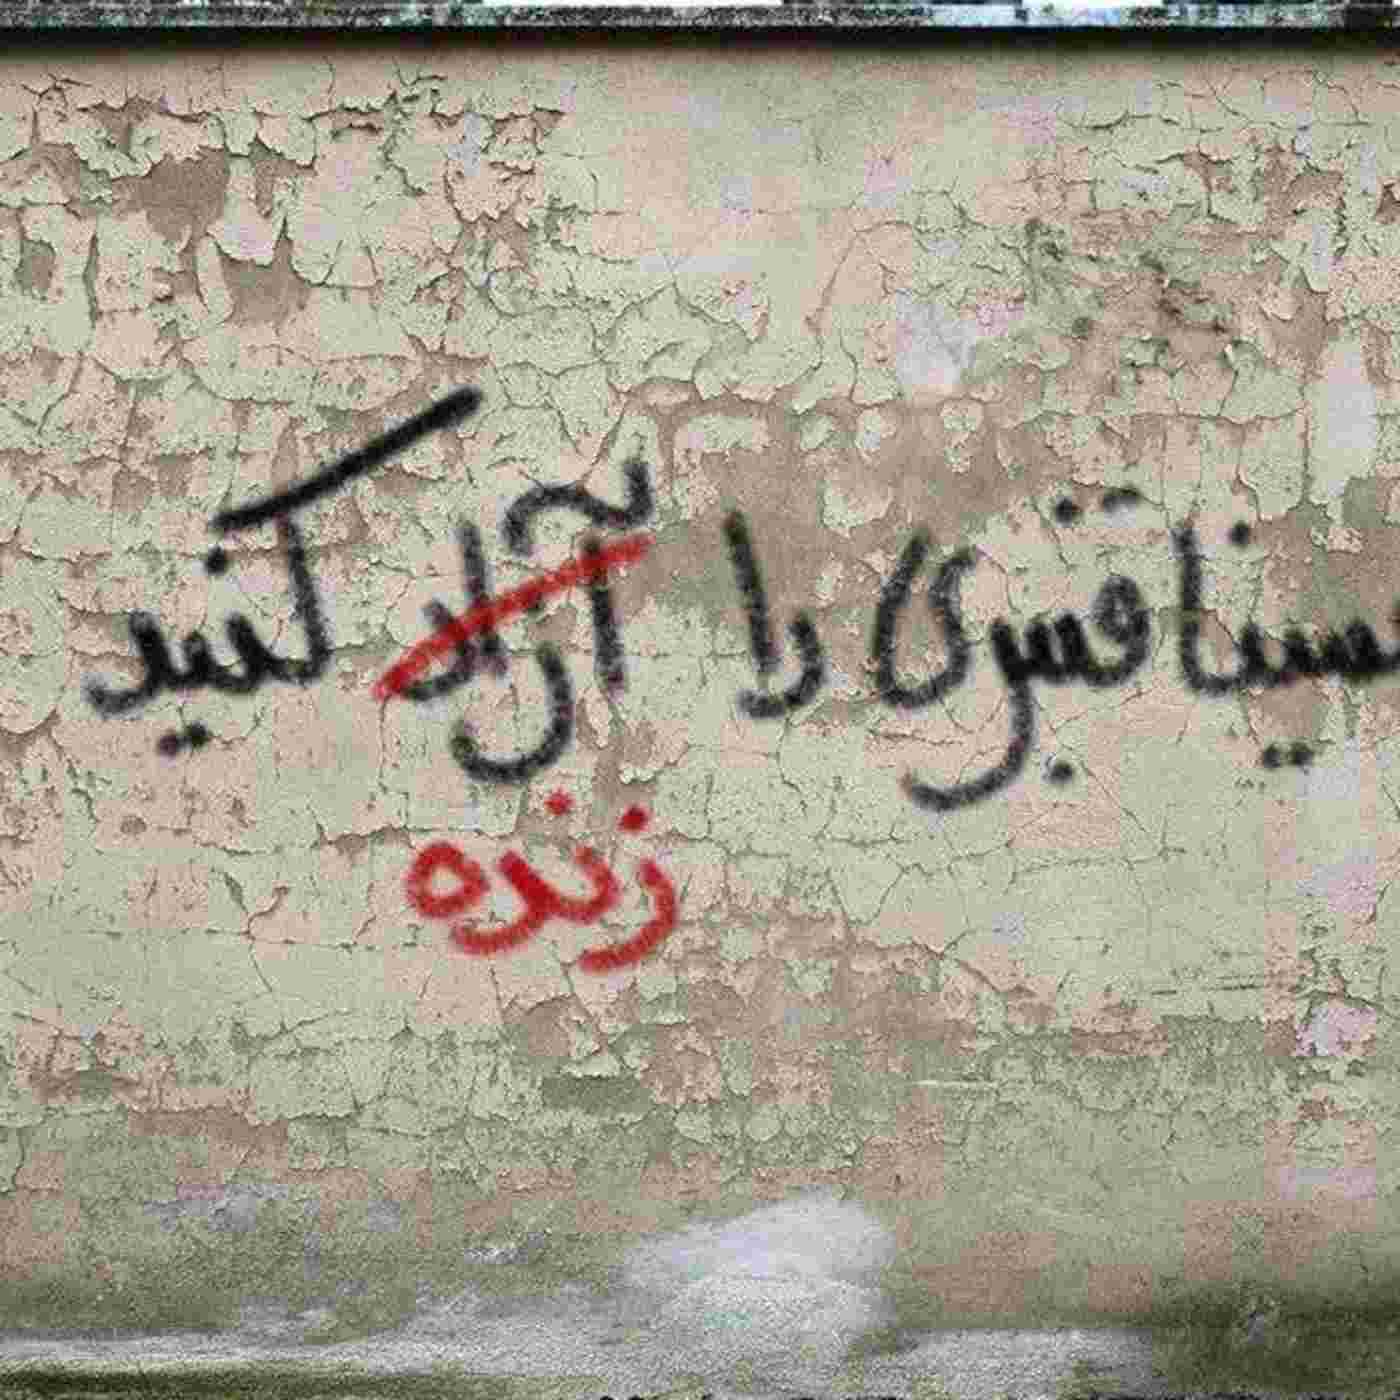 سینا قنبری را آزاد کنید
زنده